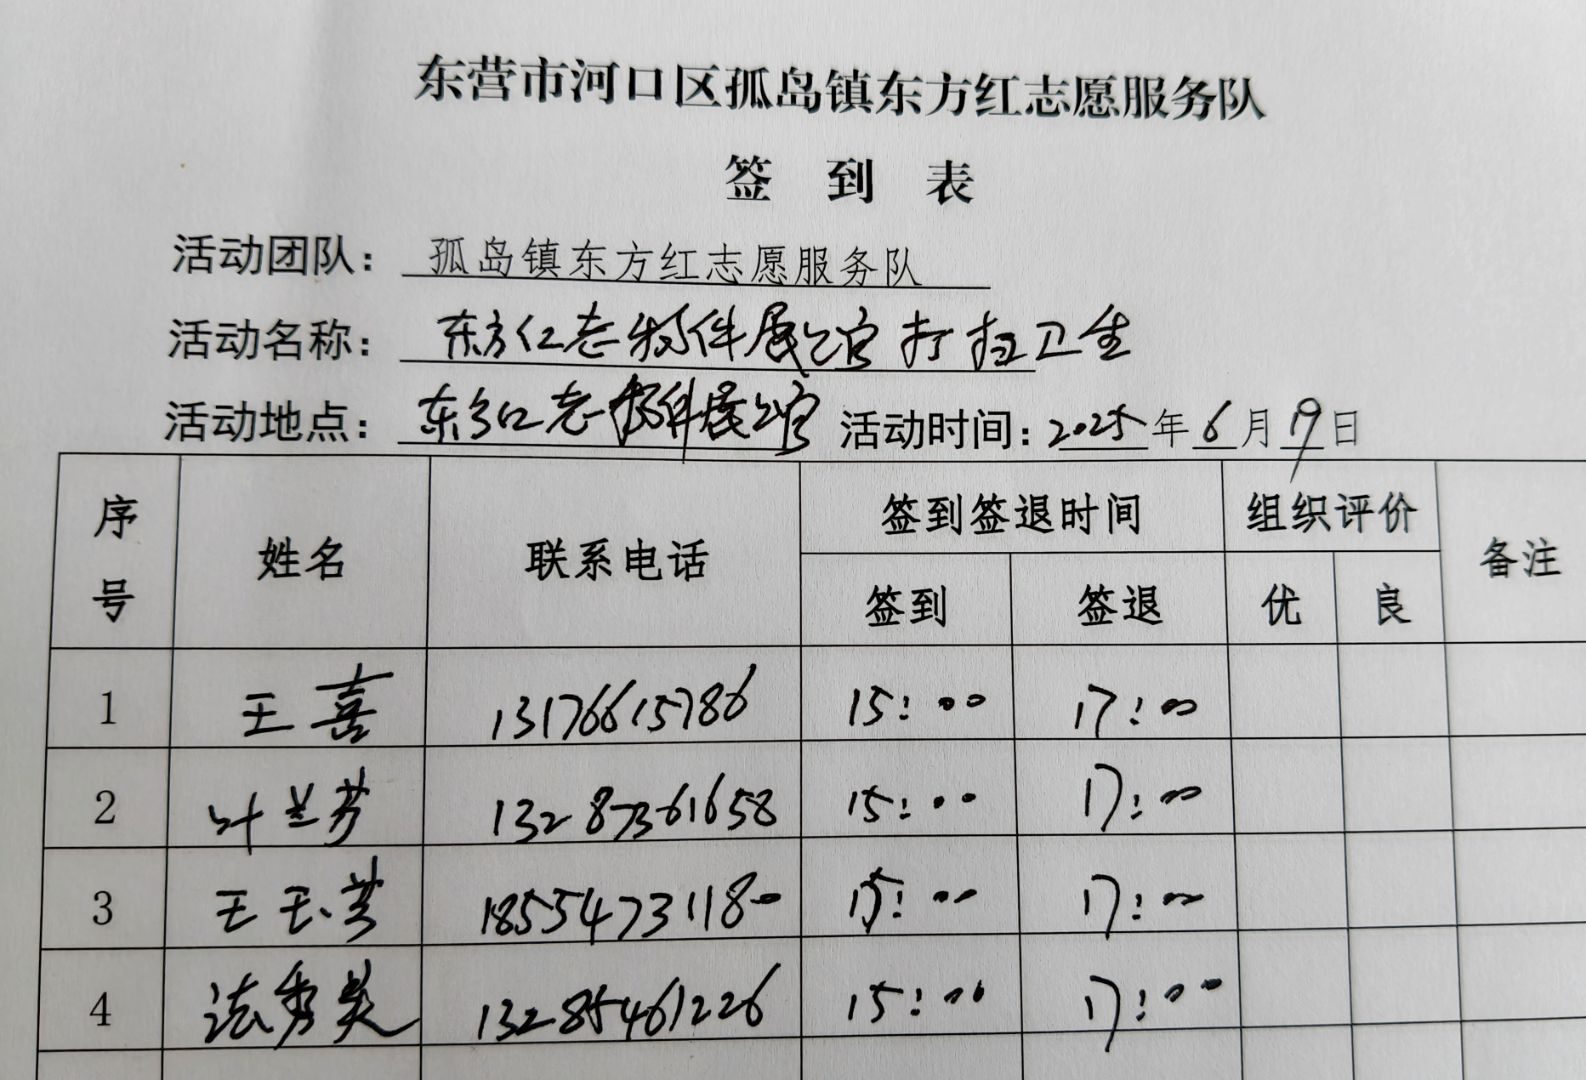 东营市河口区孤岛镇东方红志愿服务队
签 到 表
活动团队：孤岛镇东方红志愿服务队
活动名称：东方红志物件展览馆打扫卫生
活动地点：东方红志物件展览馆 活动时间：2025年6月19日
序号 姓名 联系电话 签到签退时间 组织评价 备注
签到 签退 优 良
1 王喜 13176615786 15:00 17:00
2 叶兰芳 13287361658 15:00 17:00
3 王玉芳 18554731180 15:00 17:00
4 秀美 13285461226 15:00 17:00